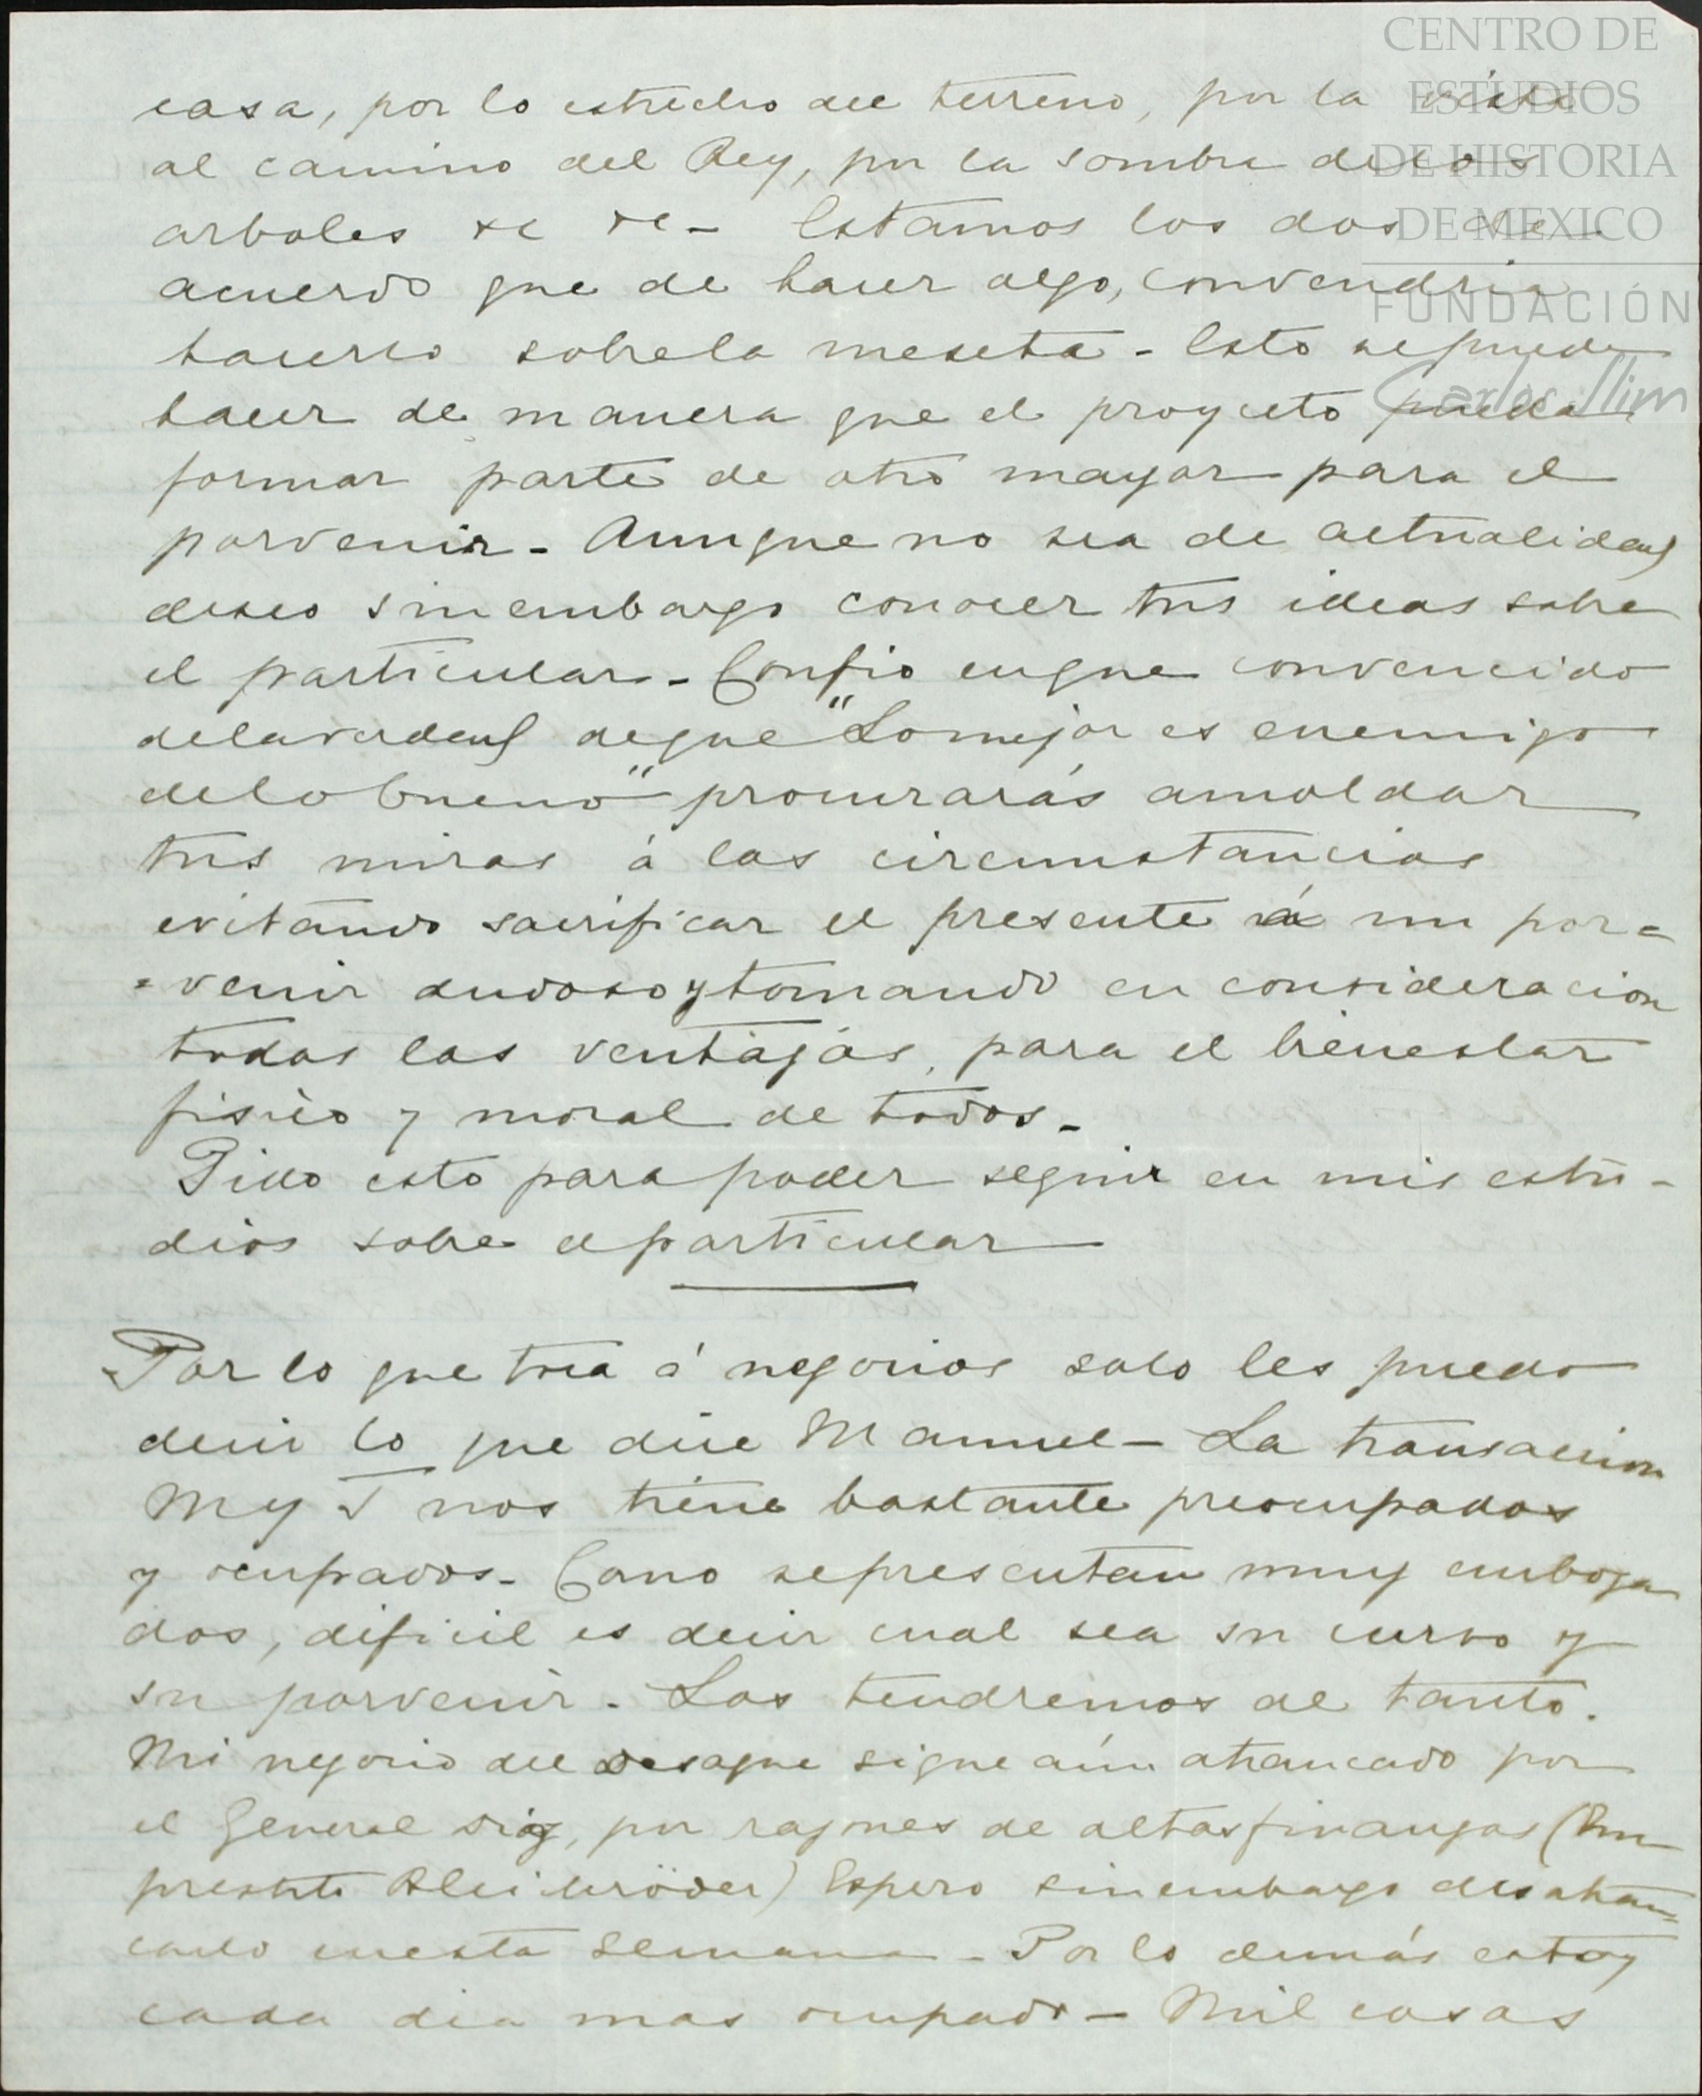 CENTRO DE
ESTUDIOS
DE HISTORIA
DE MEXICO
FUNDACIÓN
Carlos Slim
casa, por lo estrecho del terreno, por la vista
al camino del Rey, por la sombra de los
arboles &c &c - Estamos los dos de
acuerdo que de hacer algo, convendria
hacerlo sobre la meseta - Esto se puede
hacer de manera que el proyecto pueda
formar parte de otro mayor para el
porvenir - Aunque no sea de actualidad
deseo sin embargo conocer tus ideas sobre
el particular - Confio en que convencido
de la verdad de que "Lo mejor es enemigo
de lo bueno" procurarás amoldar
tus miras á las circunstancias
evitando sacrificar el presente á un por=
=venir dudoso y tomando en consideracion
todas las ventajas, para el bienestar
fisico y moral de todos -
Pido esto para poder seguir en mis estu-
dios sobre el particular
Por lo que toca á negocios solo les puedo
decir lo que dice Manuel - La transaccion
M y T nos tiene bastante preocupados
y ocupados - Como se presentan muy emboza
dos, dificil es decir cual sea su curso y
su porvenir - Los tendremos al tanto.
Mi negocio del Desague sigue aún atrancado por
el General Diaz, por razones de altas finanzas (Em
prestito Bleichröder) Espero sin embargo desatran=
carlo en esta semana - Por lo demás estoy
cada dia mas ocupado - Mil cosas